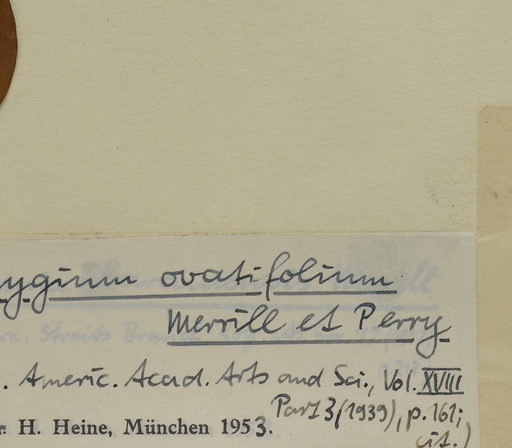 ygium ovatifolium
Merrill et Perry
. Americ. Acad. Arts and Sci., Vol. XVIII
Part 3 (1939), p. 161;
H. Heine, München 1953.
cit.)